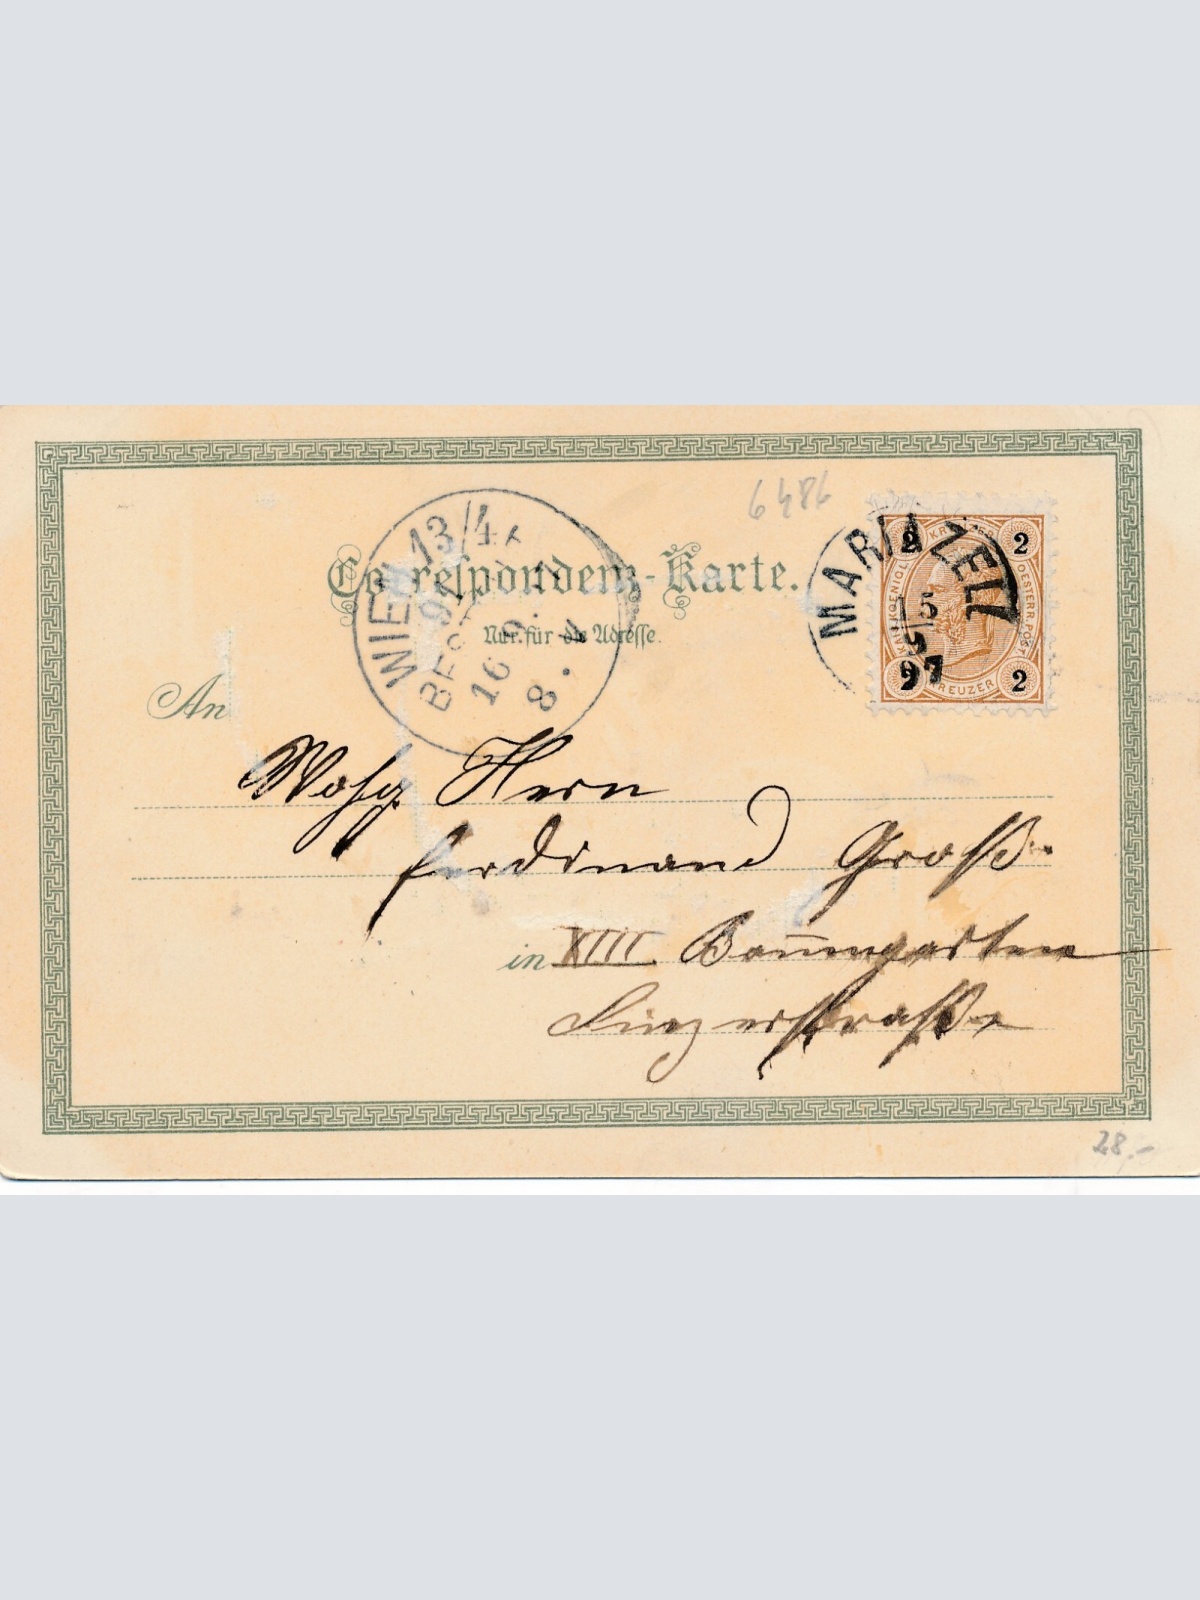 6486
Correspondenz-Karte.
Nur für die Adresse.
WIEN 13/4
BEST
16. 9.
8.
MARIAZELL
15
9
97
2 2
2 2
KREUZER
OESTERR. POST
An
Wohlg. Herrn
Ferdinand Groß
in XIII Baumgarten
Linzerstraße
28.-